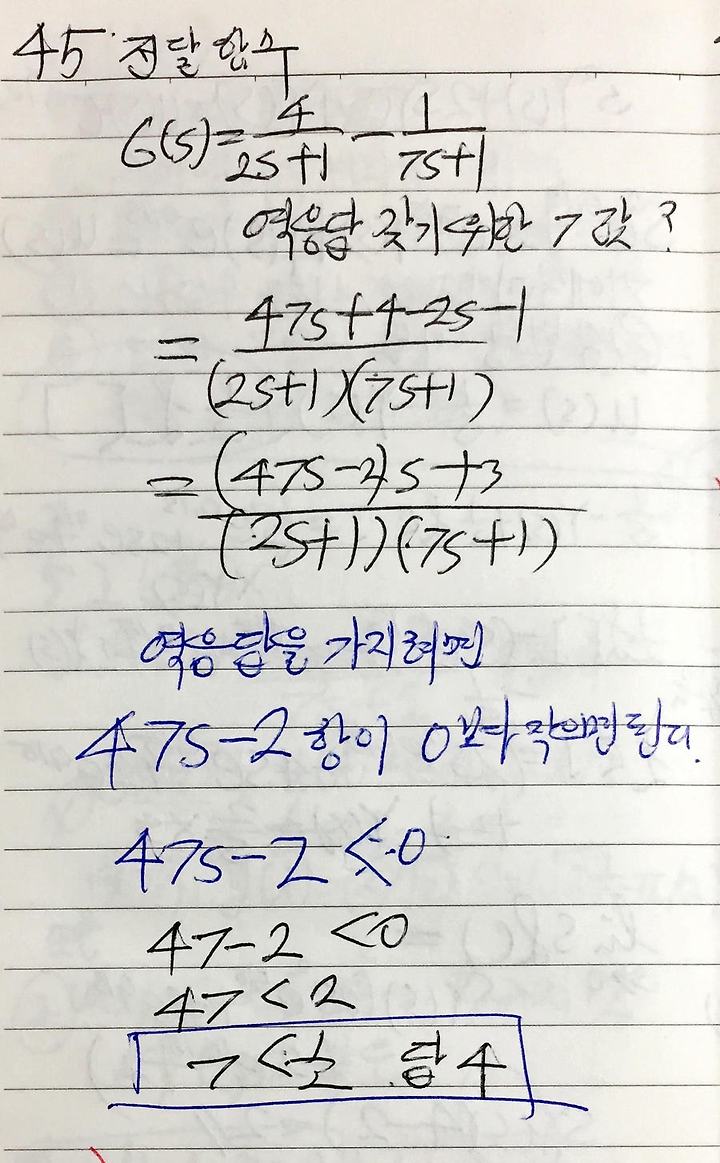 45. 전달함수
G(s)=4/(2s+1) - 1/(τs+1)
역응답 갖기 위한 τ 값?
= (4τs+4-2s-1)/((2s+1)(τs+1))
= ((4τs-2)s+3)/((2s+1)(τs+1))
역응답을 가지려면
4τs-2 항이 0보다 작으면 된다.
4τs-2 < 0
4τ-2 < 0
4τ < 2
τ < 1/2 답 4